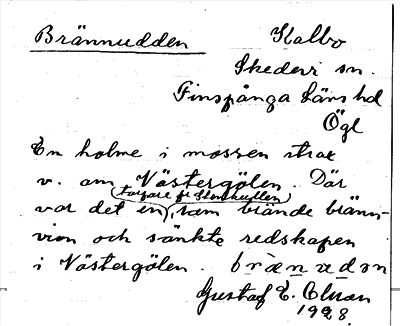 Brännudden Kalbo
Skedevi sn.
Finspånga läns hd
Ögl
En holme i mossen strax
v. om Västergölen. Där
(torpare fr Stenkullen)
var det en, som brände bränn-
vin och sänkte redskapen
i Västergölen. brænudən
Gustaf E.
1928.